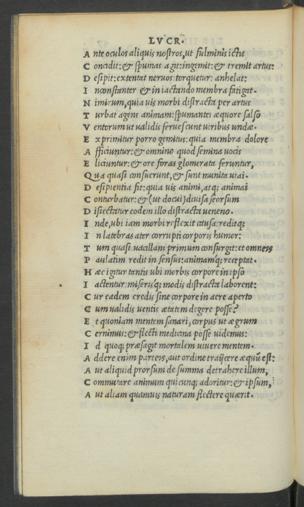 LVCR.
A nte oculos aliquis nostros, ut fulminis ictu
C oncidit: & spumat agit: ingemit: & tremit artus:
D esipit: extentat neruos: torquetur: anhelat:
I nconstanter & in iactando membra fatigat.
N imirum, quia uis morbi distracta per artus
T urbat agens animam: spumantes aequore salso
V entorum ut ualidis feruescunt uiribus undae.
E xprimitur porro gemitus: quia membra dolore
A fficiuntur: & omnino quod semina uocis
E liciuntur: & ore foras glomerata feruntur,
Q ua quasi consuerunt, & sunt munita uiai.
D esipientia fit: quia uis animi, atq; animai
C onturbatur: & (ut docui) diuisa seorsum
D isiectatur eodem illo distracta ueneno.
I nde, ubi iam morbi reflexit causa: reditq;
I n latebras ater corrupti corporis humor:
T um quasi uacillans primum consurgit: et omneis
P aulatim redit in sensus: animamq; receptat.
H aec igitur tantis ubi morbis corpore in ipso
I actentur: miserisq; modis distracta laborent:
C ur eadem credis sine corpore in aere aperto
C um ualidis uentis aetatem degere posse?
E t quoniam mentem sanari, corpus ut aegrum
C ernimus: & flecti medicina posse uidemus:
I d quoq; praesagit mortalem uiuere mentem.
A ddere enim parteis, aut ordine traiicere aequum est:
A ut aliquid prorsum de summa detrahere illum,
C ommutare animum quicunq; adoritur: & ipsum,
A ut aliam quamuis naturam flectere quaerit.